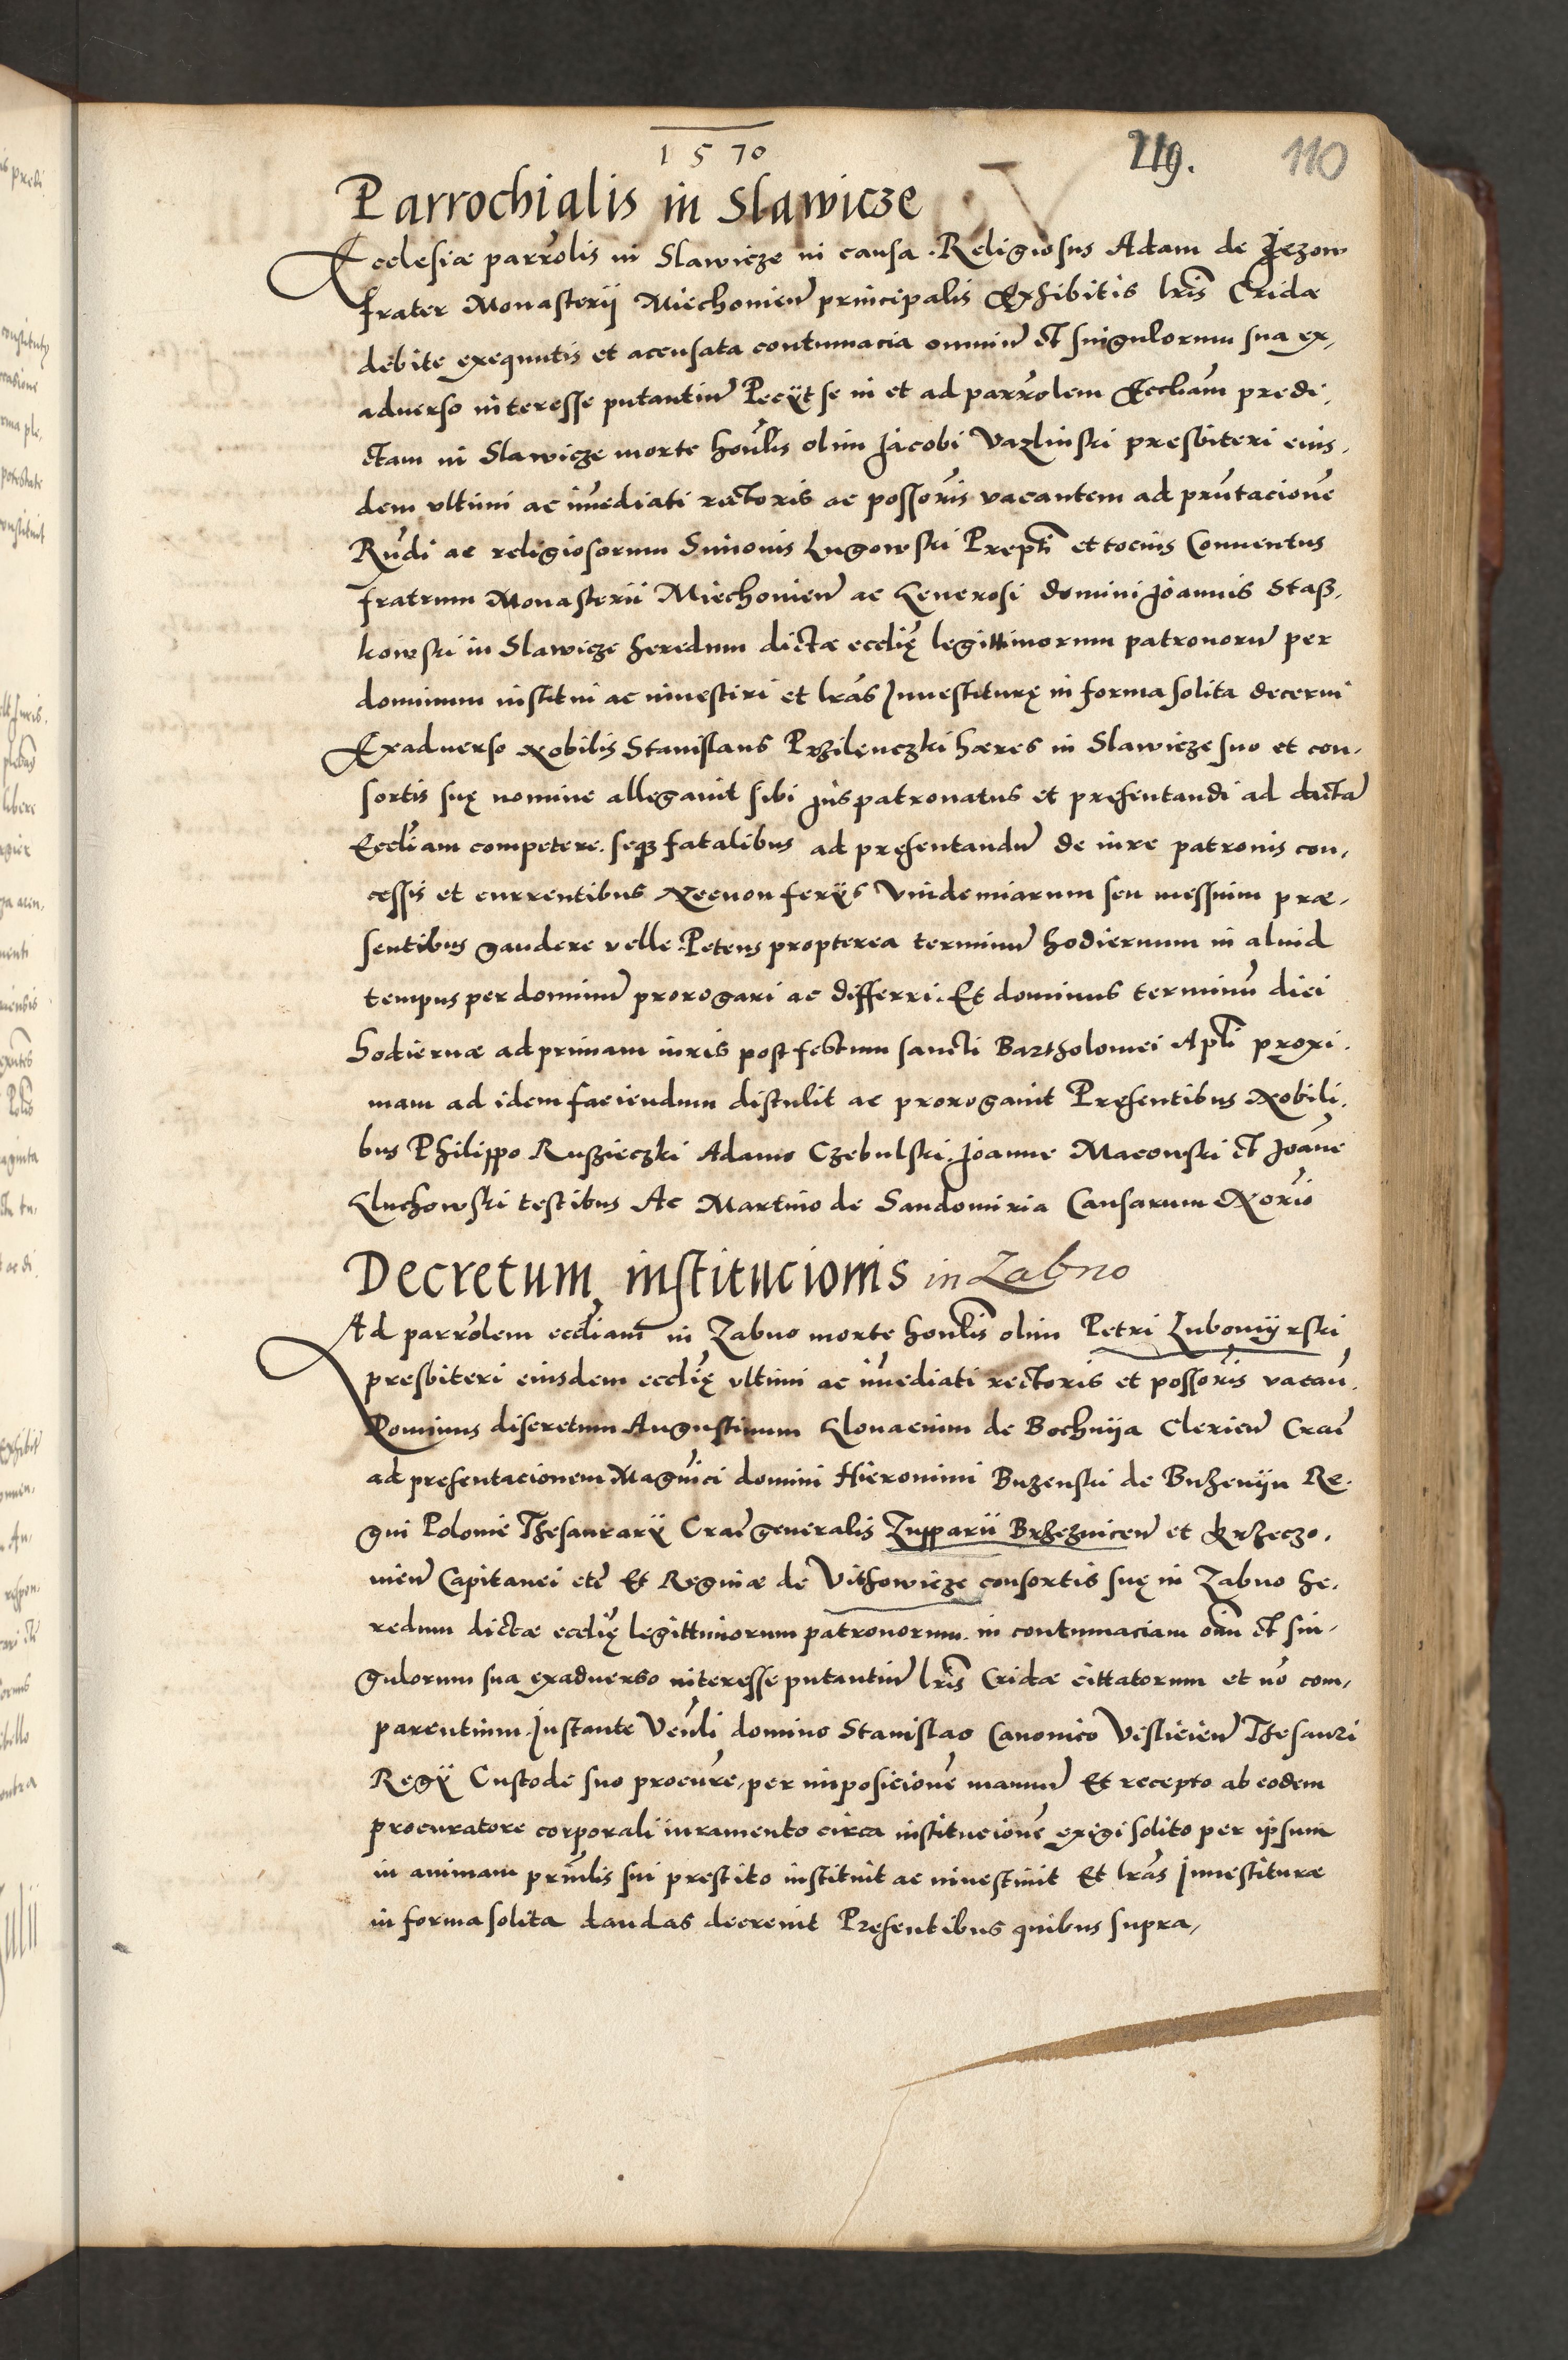 1570
119.
110
Parrochialis in Slawicze
Ecclesiæ parrolis in Slawicze in causa. Religiosus Adam de Jezow
frater Monasterij Miechouien principalis Exhibitis lris Cridæ
debite exequutis et accusata contumacia omniu et singulorum sua ex,
aduerso interesse putantiu Pecijt se in et ad parrolem Eccliam predi,
ctam in Slawicze morte honlis olim Jacobi Vazlinski presbiteri eius,
dem vltimi ac imediati rectoris ac possoris vacantem ad prntacione
Rndi ac religiosorum Simonis Lugowski Prepti et tocius Conuentus
fratrum Monasterii Miechouien ac Generosi domini Joannis Stasz,
kowski in Slawicze heredum dictæ ecclię legittimorum patronoru per
dominum institui ac inuestiri et lras Inuestiturę in forma solita decerni
Exaduerso Nobilis Stanislaus Przilenczki hæres in Slawicze suo et con,
sortis suę nomine allegauit sibi Jus patronatus et presentandi ad dicta
Eccliam competere. seqz fatalibus ad presentandu de iure patronis con,
cessis et currentibus Necnon ferijs Vindemiarum seu messium præ,
sentibus gaudere velle. Petens propterea terminu hodiernum in aliud
tempus per dominu prorogari ac differri. Et dominus terminu diei
hodiernæ ad primam iuris post festum sancti Bartholomei Apli proxi,
mam ad idem faciendum distulit ac prorogauit Presentibus Nobili,
bus Philippo Ruszieczki Adamo Czebulski. Joanne Macowski et Joane
Gluchowski testibus Ac Martino de Sandomiria Causarum Norio
Decretum institucionis in Zabno
Ad parrolem eccliam in Zabno morte honlis olim Petri Lubomijrski
presbiteri eiusdem ecclię vltimi ac imediati rectoris et possoris vacan.
Dominus discretum Augustinum Glouacium de Bochnija Clericu Crac
ad presentacionem Magnici domini Hieronimi Buzenski de Buzenijn Re,
gni Polonie Thesaurarij Crac generalis Zupparii Brzeznicen et Krzeczo,
uien Capitanei etc Et Reginæ de Vithowicze consortis suę in Zabno he,
redum dictæ ecclię legittimorum patronorum. in contumaciam oim et sin,
gulorum sua exaduerso interesse putantiu lris Cridæ cittatorum et no com,
parentium. Instante Venli domino Stanislao Canonico Vislicien Thesauri
Regij Custode suo procure, per imposicione manuu Et recepto ab eodem
procuratore corporali iuramento circa institucione exigi solito per ipsum
in animam prinlis sui prestito instituit ac inuestiuit Et lras Inuestituræ
in forma solita dandas decreuit Presentibus quibus supra,